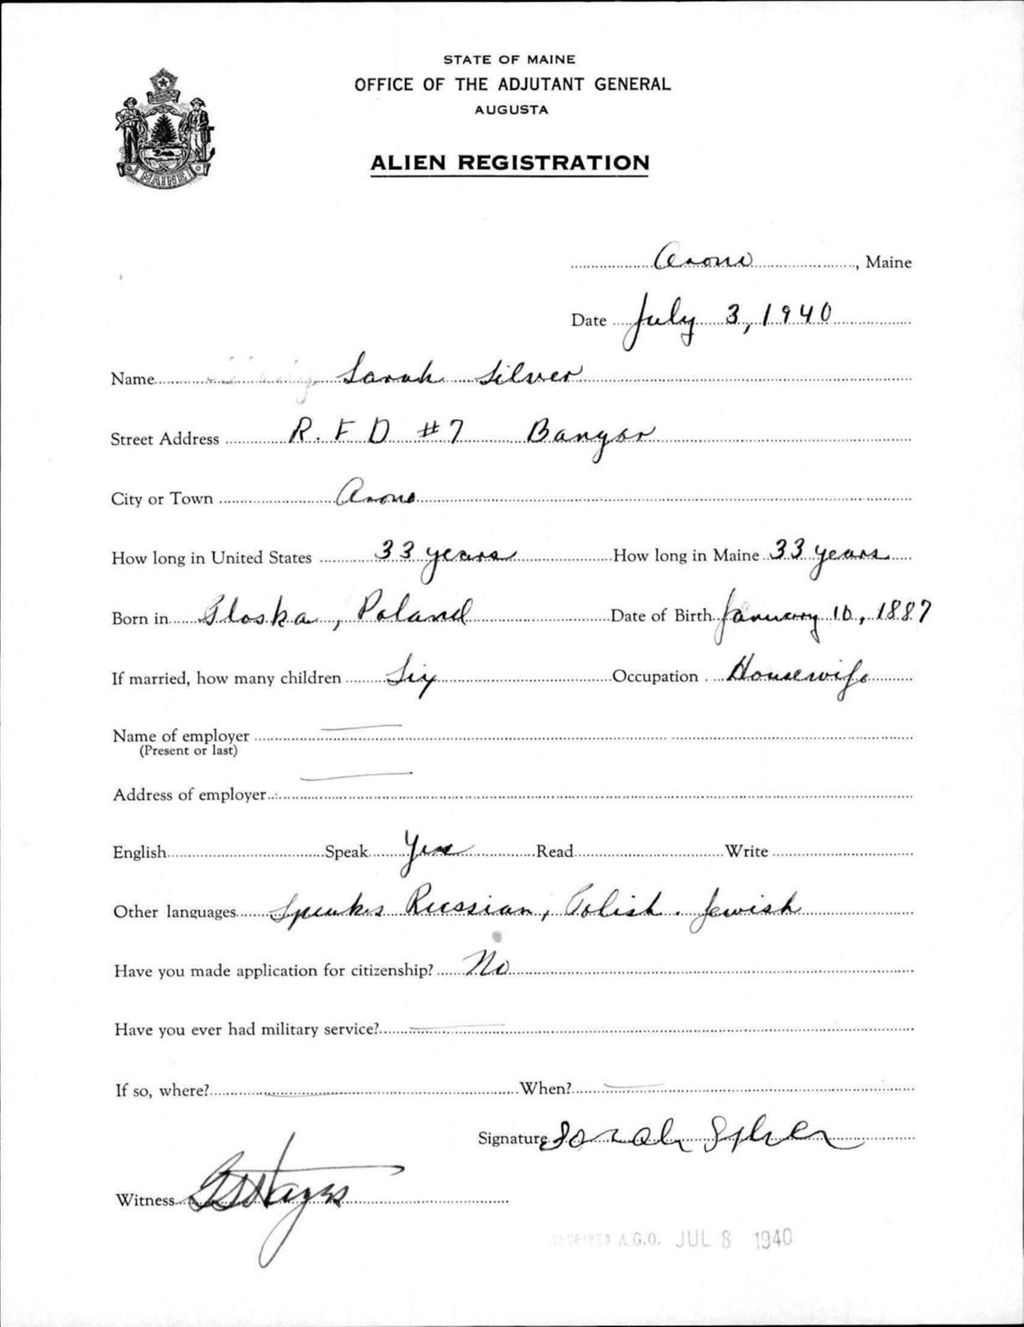 STATE OF MAINE
OFFICE OF THE ADJUTANT GENERAL
AUGUSTA
ALIEN REGISTRATION
MAINE
Orono, Maine
Date July 3, 1940
Name Sarah Silver
Street Address R.F.D #7 Bangor
City or Town Orono
How long in United States 33 years How long in Maine 33 years
Born in Ploska, Poland Date of Birth January 10, 1887
If married, how many children Six Occupation Housewife
Name of employer
(Present or last)
Address of employer
English Speak Yes Read Write
Other languages Speaks Russian, Polish. Jewish
Have you made application for citizenship? No
Have you ever had military service?
If so, where? When?
Signature Sarah
Witness Hayes
RECEIVED A.G.O. JUL 8 1940